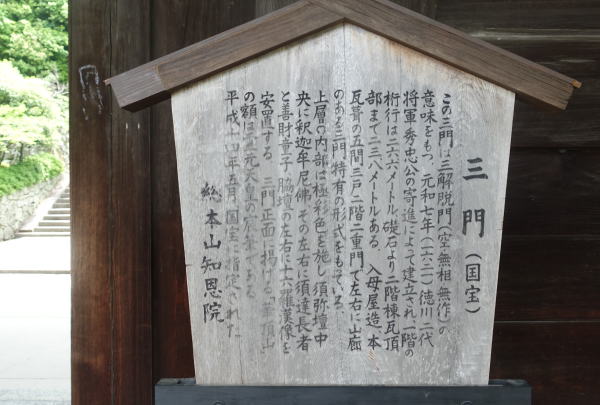 三門（国宝）
この三門は三解脱門（空・無相・無作）の
意味をもつ。元和七年（一六二一）徳川二代
将軍秀忠公の寄進によって建立され、一階の
桁行は二六・六メートル、礎石より二階棟瓦頂
部まで二三・八メートルある。入母屋造、本
瓦葺の五間三戸二階二重門で左右に山廊
のある三門特有の形式をもている。
上層の内部は極彩色を施し須弥壇中
央に釈迦牟尼佛、その左右に須達長者
と善財童子、脇壇の左右に十六羅漢像を
安置する。三門正面に掲げる「華頂山」
の額は霊元天皇の宸筆である。
平成十四年五月国宝に指定された
総本山知恩院